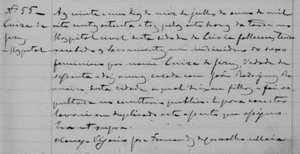 Nº 55
Luiza de
Jesus
Hospital
Aos vinte e um dias do mez de julho do anno de mil
oito centos oitenta e tres, pelas horas da tarde no
Hospital civil desta cidade de Leiria falleceu tendo
recebido os Sacramentos um individuo do sexo
feminino por nome Luiza de Jesus, d'edade de
sessenta annos casada com João Rodrigues
desta cidade, a qual deixou filhos, e foi se
pultada no cemiterio publico. E para constar
lavrei em duplicado este assento que assigno.
Era ut supra.
O Conego Vigario José Fernandes